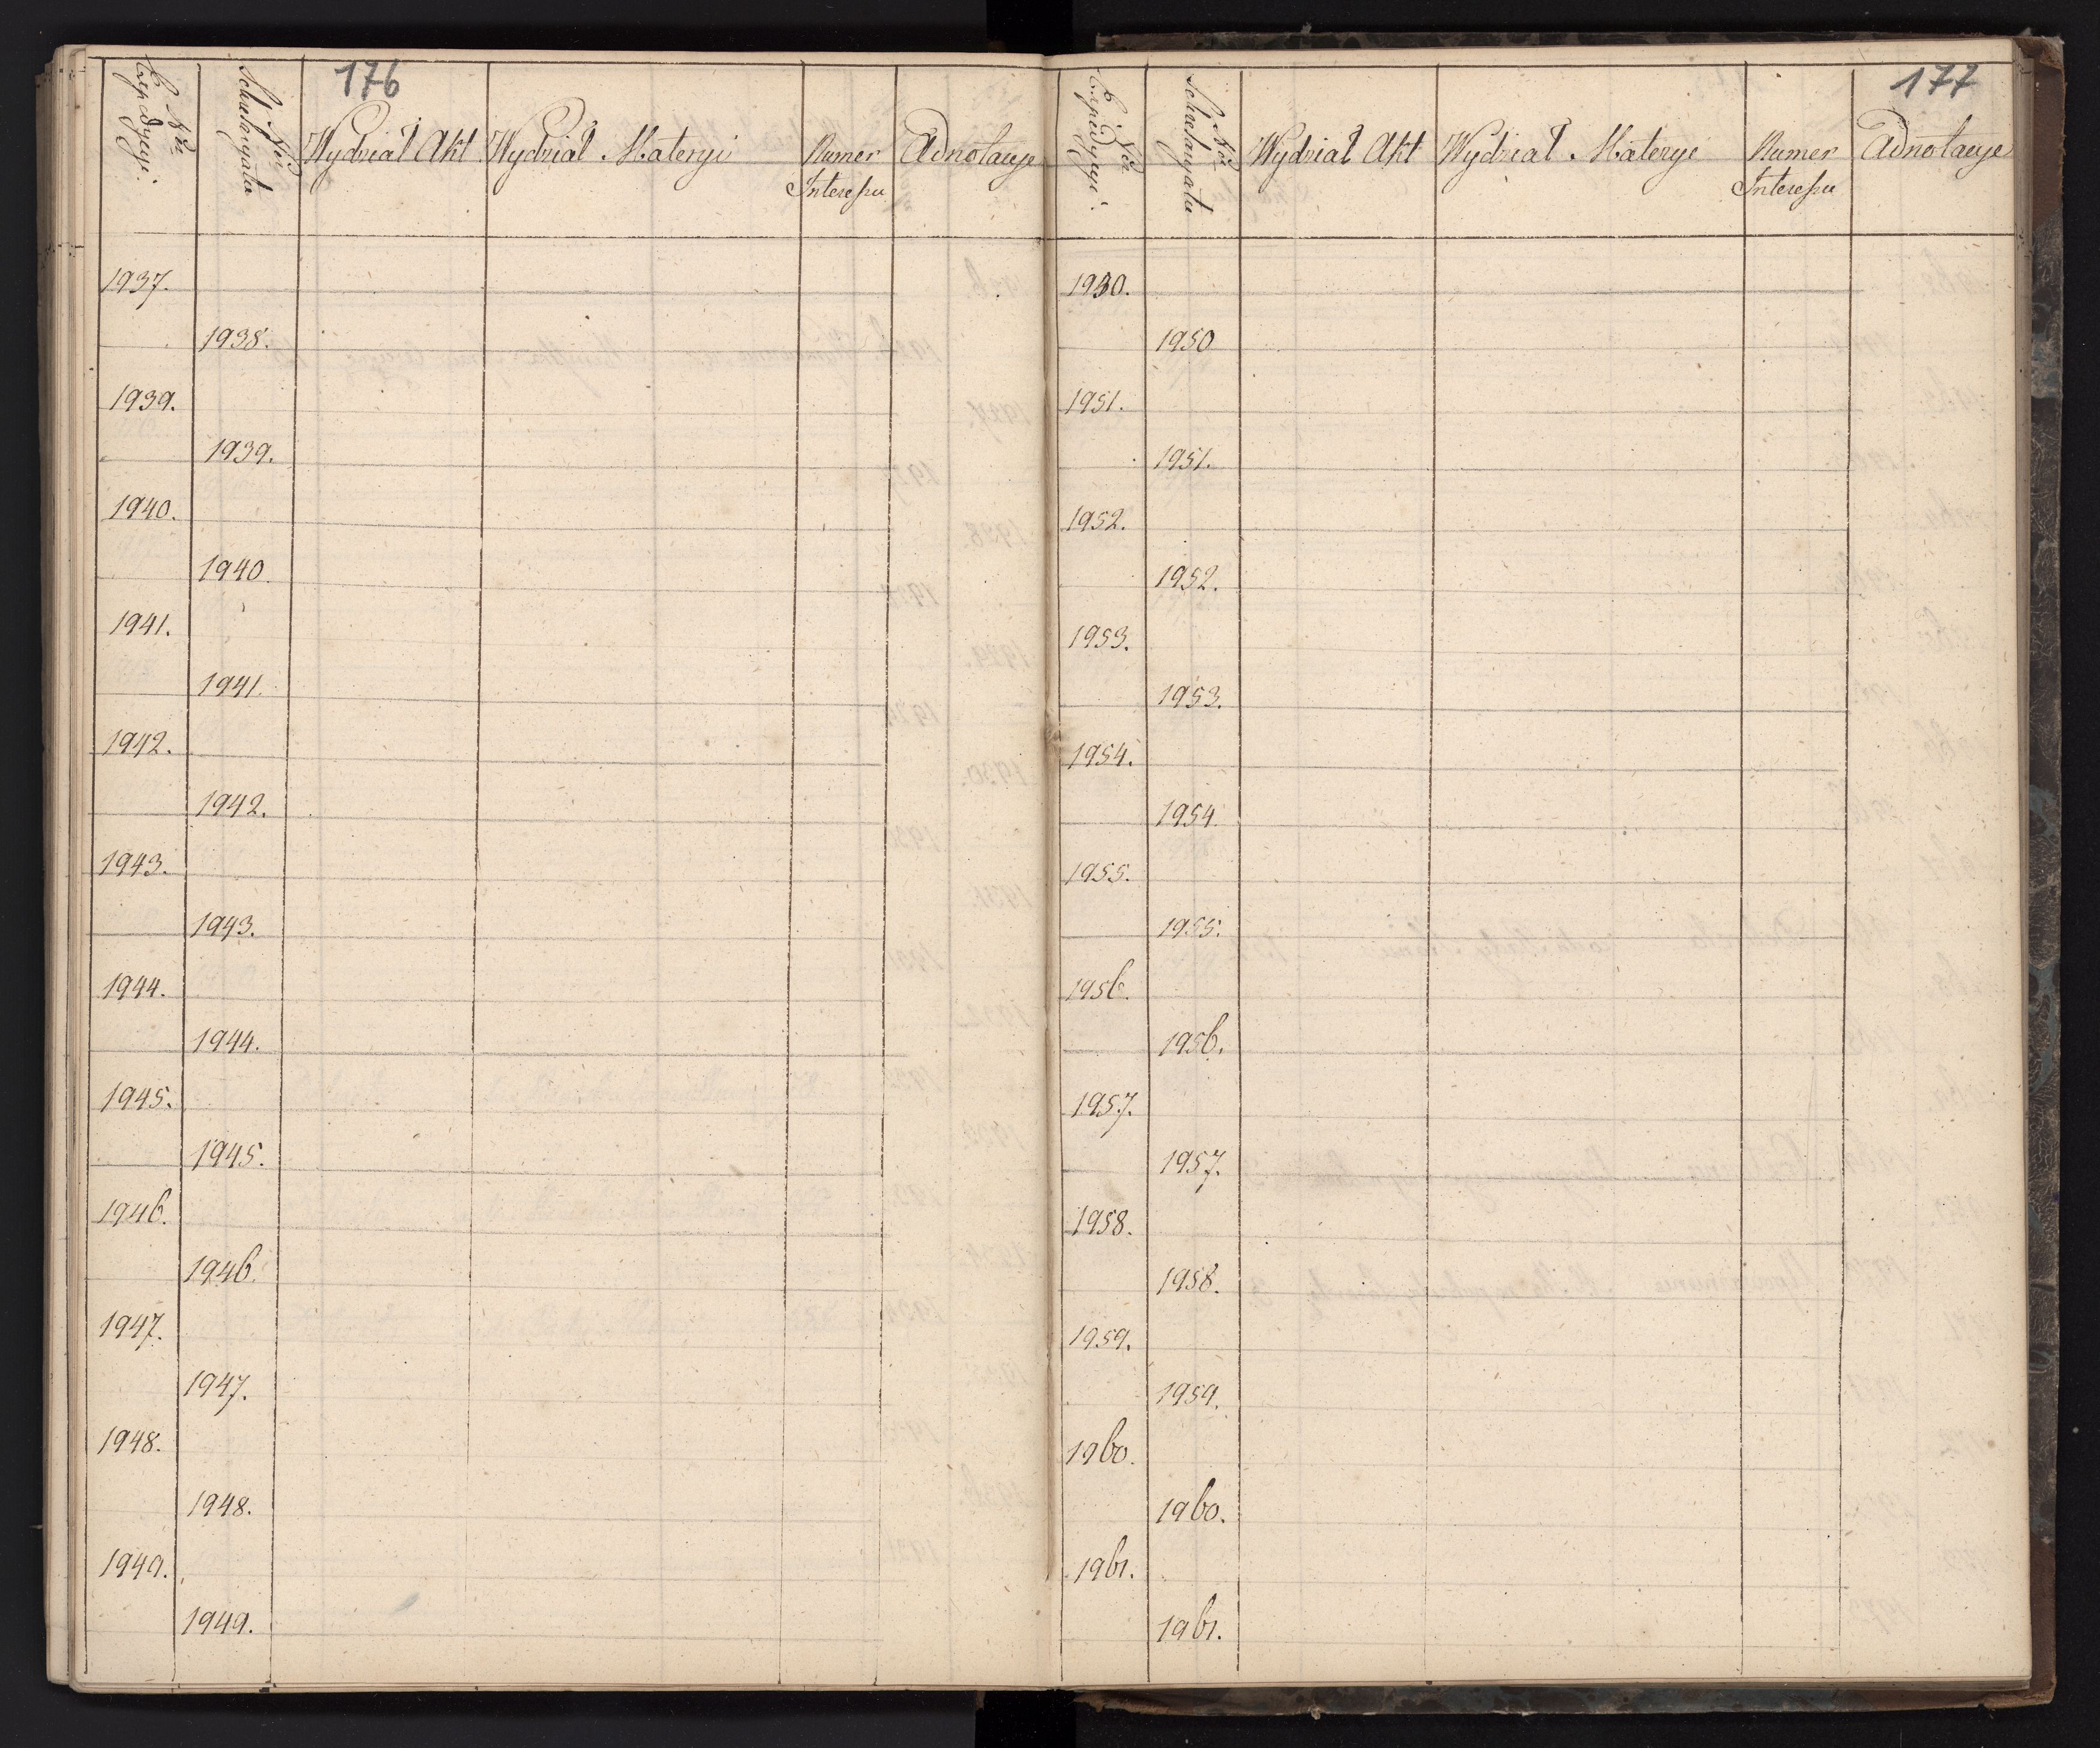 176
Nro Expedycyi.
Nro Sekretaryatu
Wydział Akt
Wydział Materyi
Numer Interessu
Adnotacye
1937.
1938.
1939.
1939.
1940.
1940.
1941.
1941.
1942.
1942.
1943.
1943.
1944.
1944.
1945.
1945.
1946.
1946.
1947.
1947.
1948.
1948.
1949.
1949.
177
Nro Expedycyi.
Nro Sekretaryatu
Wydział Akt
Wydział Materye
Numer Interessu
Adnotacye
1950.
1950
1951.
1951.
1952.
1952.
1953.
1953.
1954.
1954.
1955.
1955.
1956.
1956.
1957.
1957.
1958.
1958.
1959.
1959.
1960.
1960.
1961.
1961.